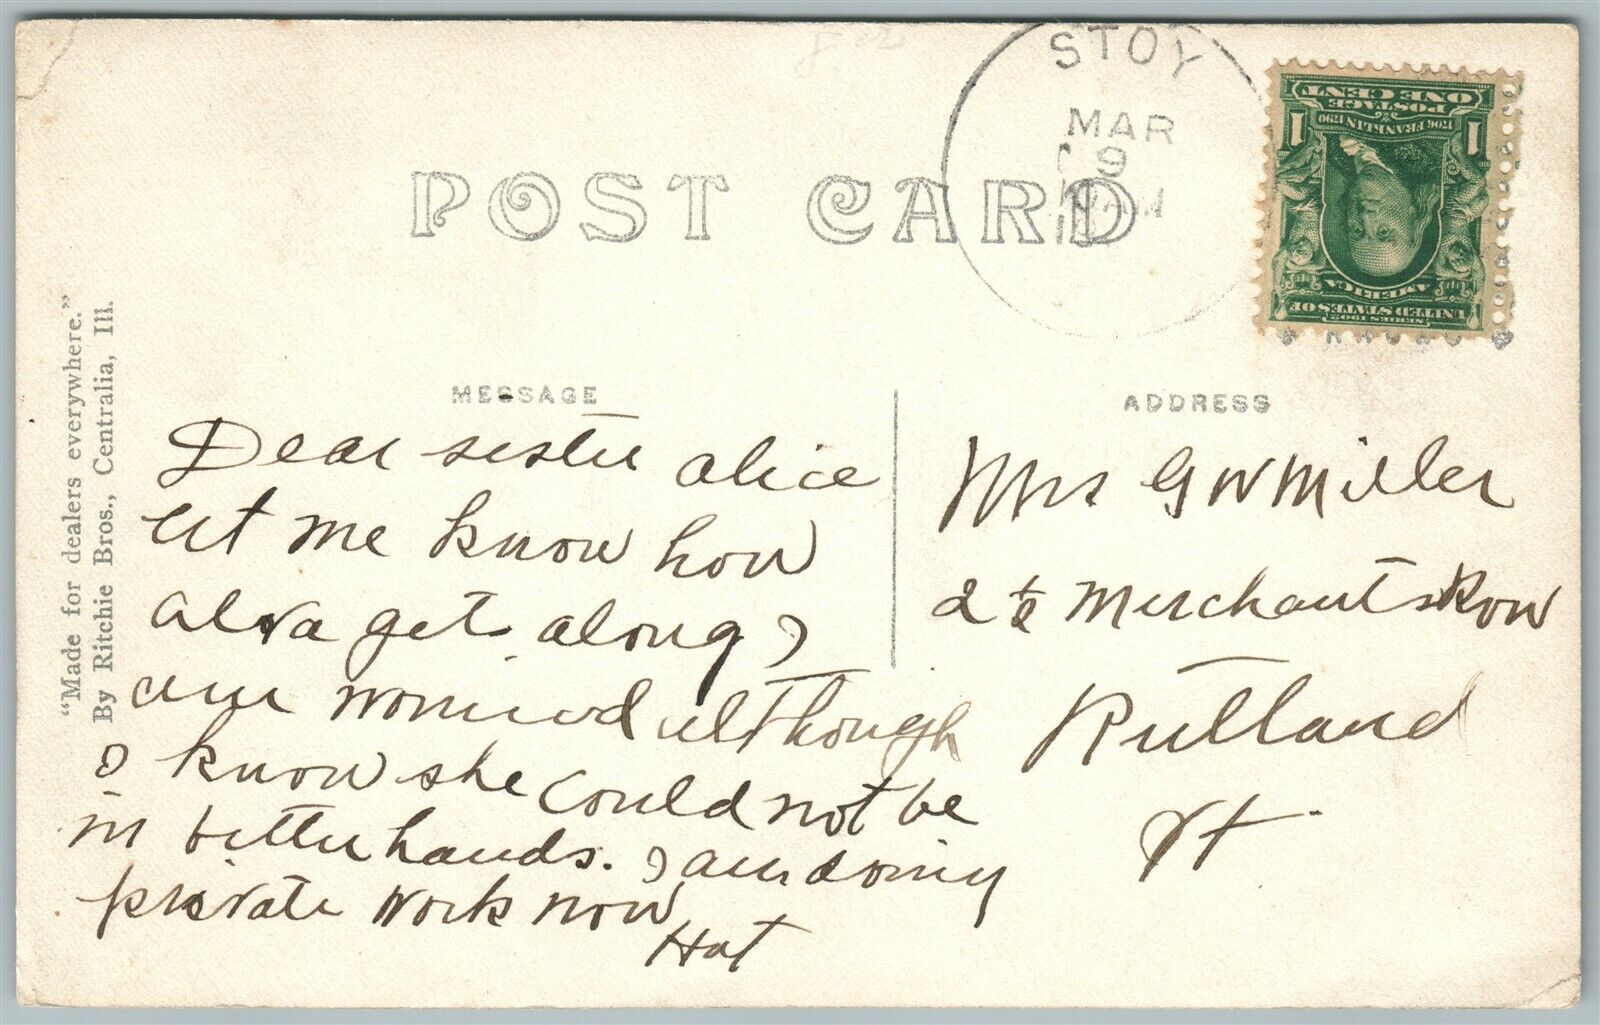 STOY
MAR
9
POST CARD
ONE CENT
POSTAGE
1706 FRANKLIN 1790
1 1
AMERICA
UNITED STATES OF
SERIES 1902
"Made for dealers everywhere."
By Ritchie Bros., Centralia, Ill.
MESSAGE
Dear sister alice
let me know how
alva get along, I
am worried although
I know she could not be
in better hands. I am doing
private work now
Hat
ADDRESS
Mrs G W Miller
Merchants Row
Rutland
Vt.